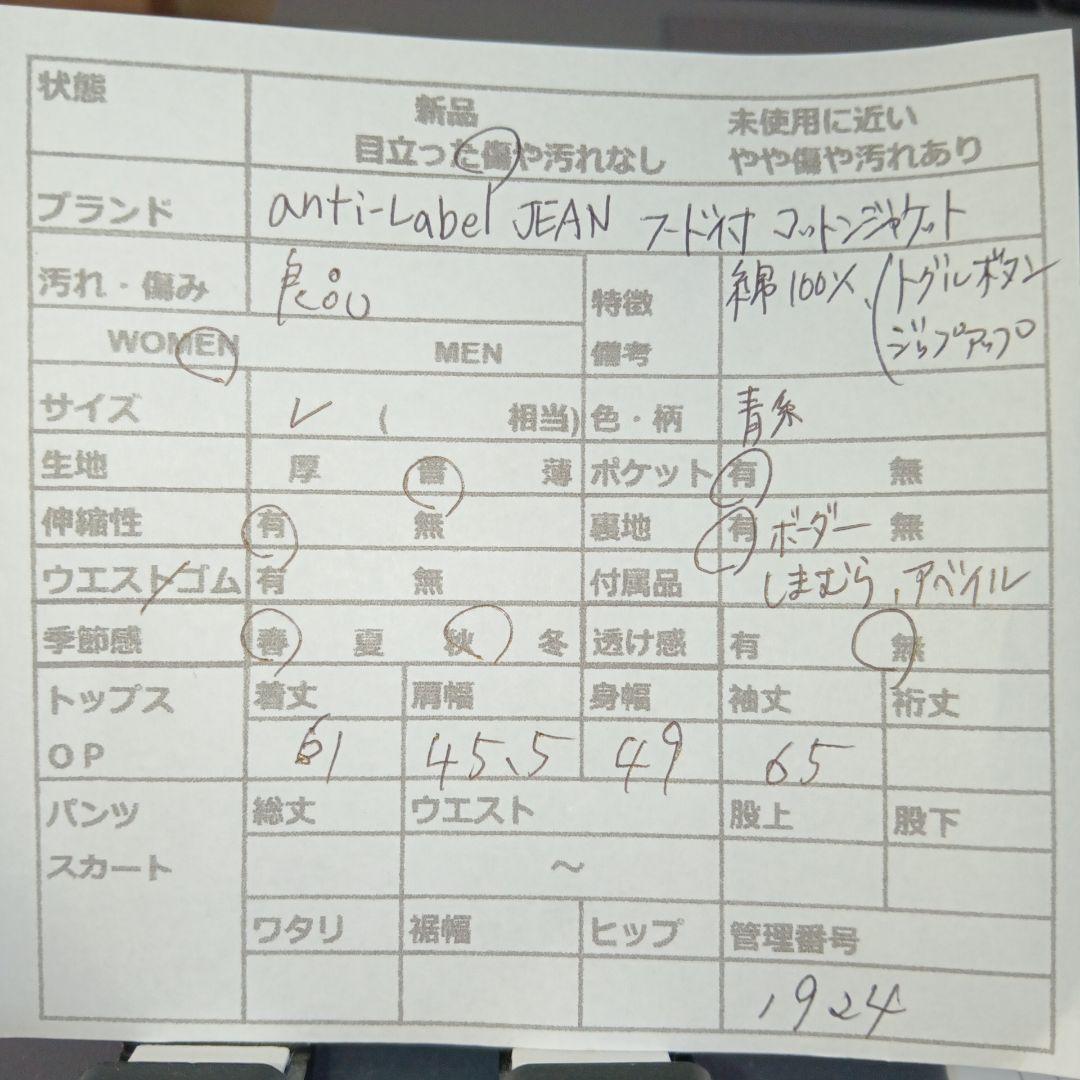 状態 新品 未使用に近い
目立った傷や汚れなし やや傷や汚れあり
ブランド anti-Label JEAN フード付 コットンジャケット
汚れ・傷み 良い 特徴 綿100%、(トグルボタン
ジップアップ
WOMEN MEN 備考
サイズ L ( 相当) 色・柄 青系
生地 厚 普 薄 ポケット 有 無
伸縮性 有 無 裏地 有 ボーダー 無
ウエストゴム 有 無 付属品 しまむら、アベイル
季節感 春 夏 秋 冬 透け感 有 無
トップス 着丈 肩幅 身幅 袖丈 裄丈
OP 61 45.5 49 65
パンツ 総丈 ウエスト 股上 股下
スカート ～
ワタリ 裾幅 ヒップ 管理番号
1924